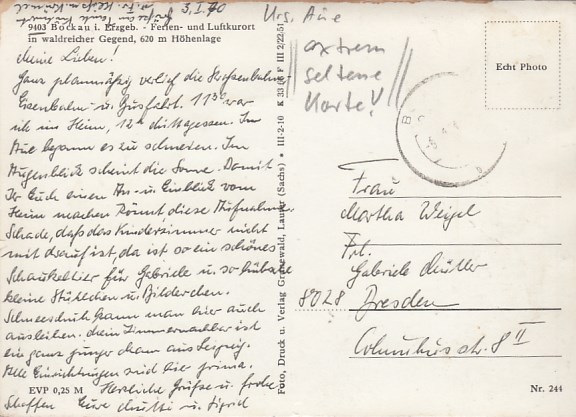 3.I.70
9403 Bockau i. Erzgeb. - Ferien- und Luftkurort
in waldreicher Gegend, 620 m Höhenlage
Meine Lieben!
Ganz planmäßig verlief die Straßenbahn-
Eisenbahn- u. Busfahrt. 11³⁰ war
ich im Heim, 12 Mittagessen. In
Aue begann es zu schneien. Im
Augenblick scheint die Sonne. Damit
Ihr Euch einen An- u. Einblick vom
Heim machen könnt, diese Aufnahme.
Schade, daß das Kinderzimmer nicht
mit drauf ist, da ist so ein schönes
Schaukeltier für Gabriele u. so hübsche
kleine Stühlchen u. Bilderchen.
Schneeschuh kann man hier auch
ausleihen. Mein Zimmernachbar ist
ein ganz junger Mann aus Leipzig.
Alle Einrichtungen sind hier prima.
Herzliche Grüße u. frohes
Schaffen Eure Mutti u. Sigrid
EVP 0,25 M
Foto, Druck u. Verlag Grünewald, Lauter (Sachs) * III-2-10 K 33/46 F III 2/22/51
Urs. Aue
extrem
seltene
Karte!
Echt Photo
Frau
Martha Weigel
Gabriele
8028 Dresden
Columbusstr. 8 II
Nr. 244